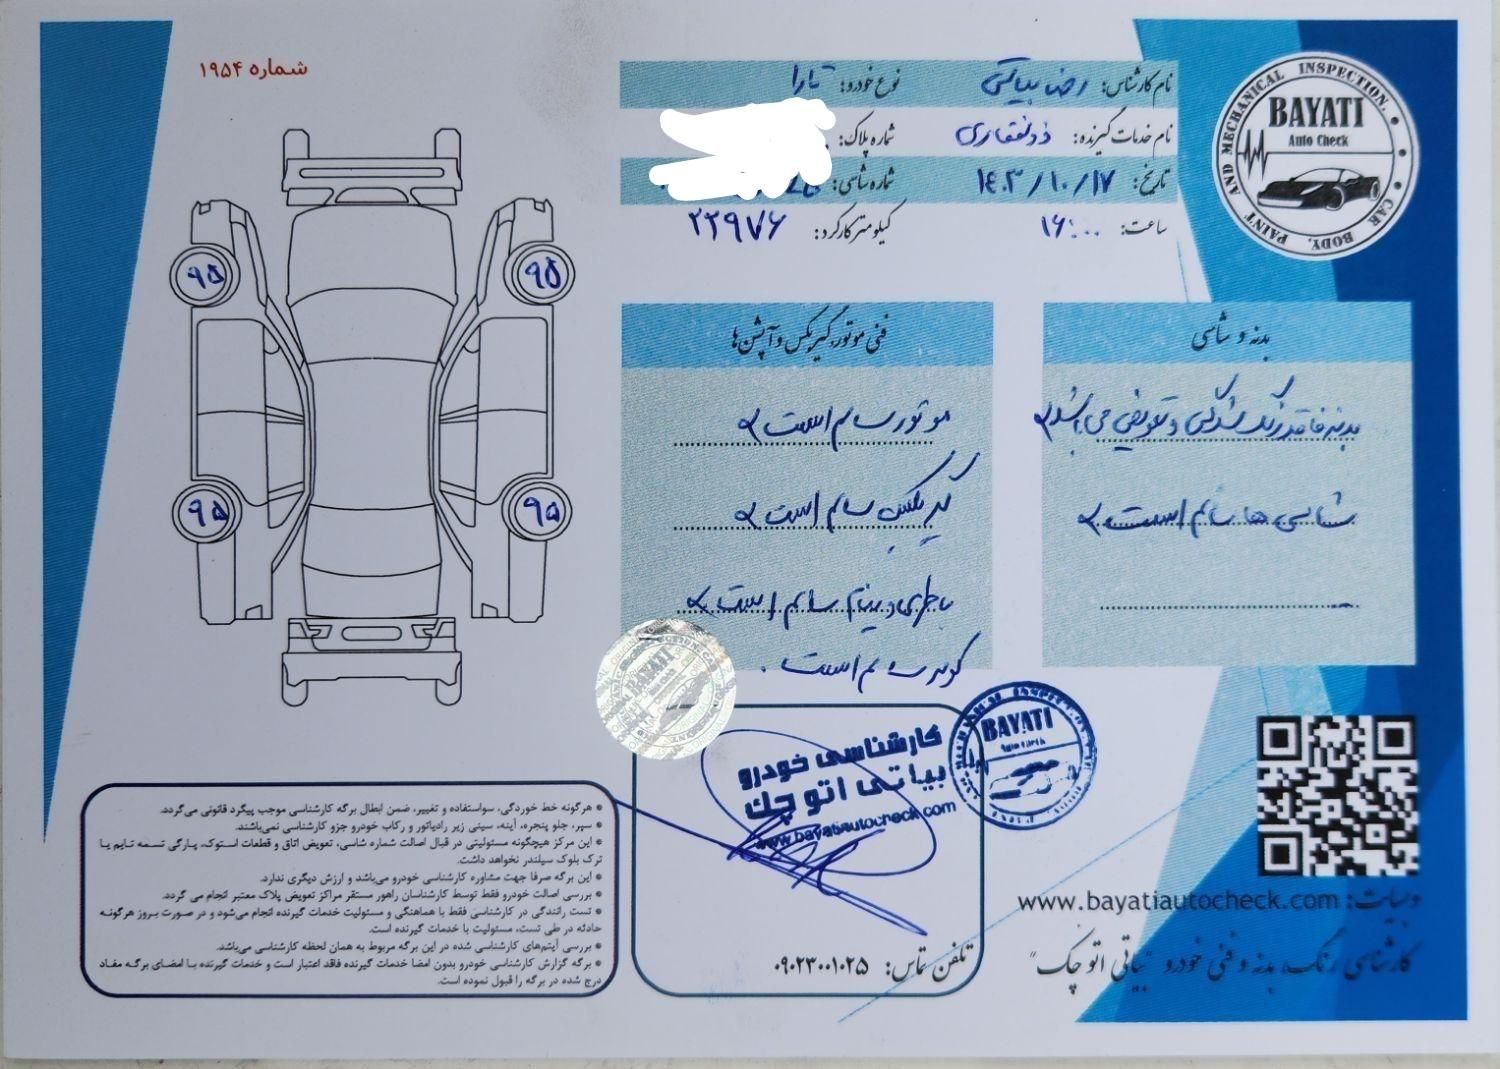 شماره ۱۹۵۴
نام کارشناس: رضا بیاتی
نوع خودرو: تارا
نام خدمات گیرنده: ذوالفقاری
شماره پلاک:
تاریخ: ۱۴۰۳/۱۰/۱۷
شماره شاسی:
ساعت: ۱۶:۰۰
کیلومتر کارکرد: ۲۲۹۷۶
BAYATI
Auto Check
CAR BODY, PAINT AND MECHANICAL INSPECTION.
۹۵
۹۵
۹۵
۹۵
بدنه و شاسی
بدنه فاقد رنگ شدگی و تعویض می باشد
شاسی ها سالم است
فنی موتور، گیربکس و آپشن ها
موتور سالم است
گیربکس سالم است
باطری و دینام سالم است
کولر سالم است.
BAYATI
Auto Check
کارشناسی خودرو
بیاتی اتو چک
www.bayatiautocheck.com
تلفن تماس: ۰۹۰۲۳۰۰۱۰۲۵
• هرگونه خط خوردگی، سواستفاده و تغییر، ضمن ابطال برگه کارشناسی موجب پیگرد قانونی می‌گردد.
• سپر، جلو پنجره، آینه، سینی زیر رادیاتور و رکاب خودرو جزو کارشناسی نمی‌باشند.
• این مرکز هیچگونه مسئولیتی در قبال اصالت شماره شاسی، تعویض اتاق و قطعات استوک، پارگی تسمه تایم یا
ترک بلوک سیلندر نخواهد داشت.
• این برگه صرفا جهت مشاوره کارشناسی خودرو می‌باشد و ارزش دیگری ندارد.
• بررسی اصالت خودرو فقط توسط کارشناسان راهور مستقر مراکز تعویض پلاک معتبر انجام می گردد.
• تست رانندگی در کارشناسی فقط با هماهنگی و مسئولیت خدمات گیرنده انجام می‌شود و در صورت بروز هرگونه
حادثه در طی تست، مسئولیت با خدمات گیرنده است.
• بررسی آیتم‌های کارشناسی شده در این برگه مربوط به همان لحظه کارشناسی می‌باشد.
• برگه گزارش کارشناسی خودرو بدون امضا خدمات گیرنده فاقد اعتبار است و خدمات گیرنده با امضای برگه مفاد
درج شده در برگه را قبول نموده است.
وبسایت: www.bayatiautocheck.com
کارشناسی رنگ، بدنه و فنی خودرو "بیاتی اتو چک"